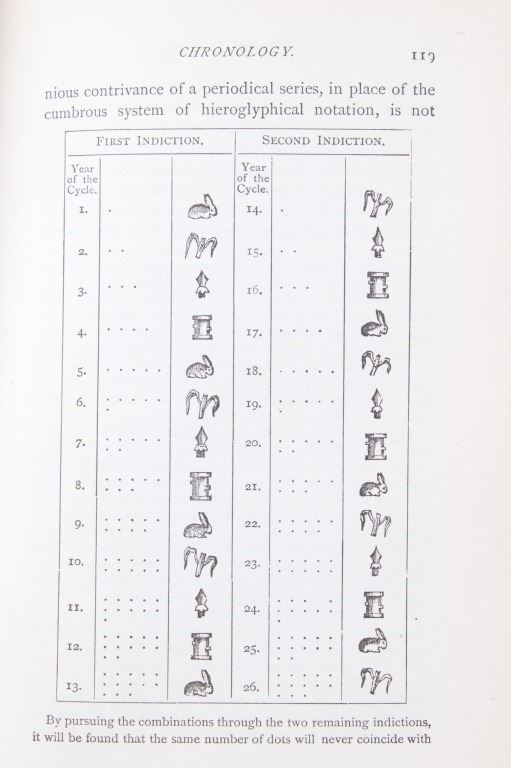 CHRONOLOGY. 119
nious contrivance of a periodical series, in place of the
cumbrous system of hieroglyphical notation, is not
FIRST INDICTION. SECOND INDICTION.
Year of the Cycle. Year of the Cycle.
1. 14.
2. 15.
3. 16.
4. 17.
5. 18.
6. 19.
7. 20.
8. 21.
9. 22.
10. 23.
11. 24.
12. 25.
13. 26.
By pursuing the combinations through the two remaining indictions,
it will be found that the same number of dots will never coincide with